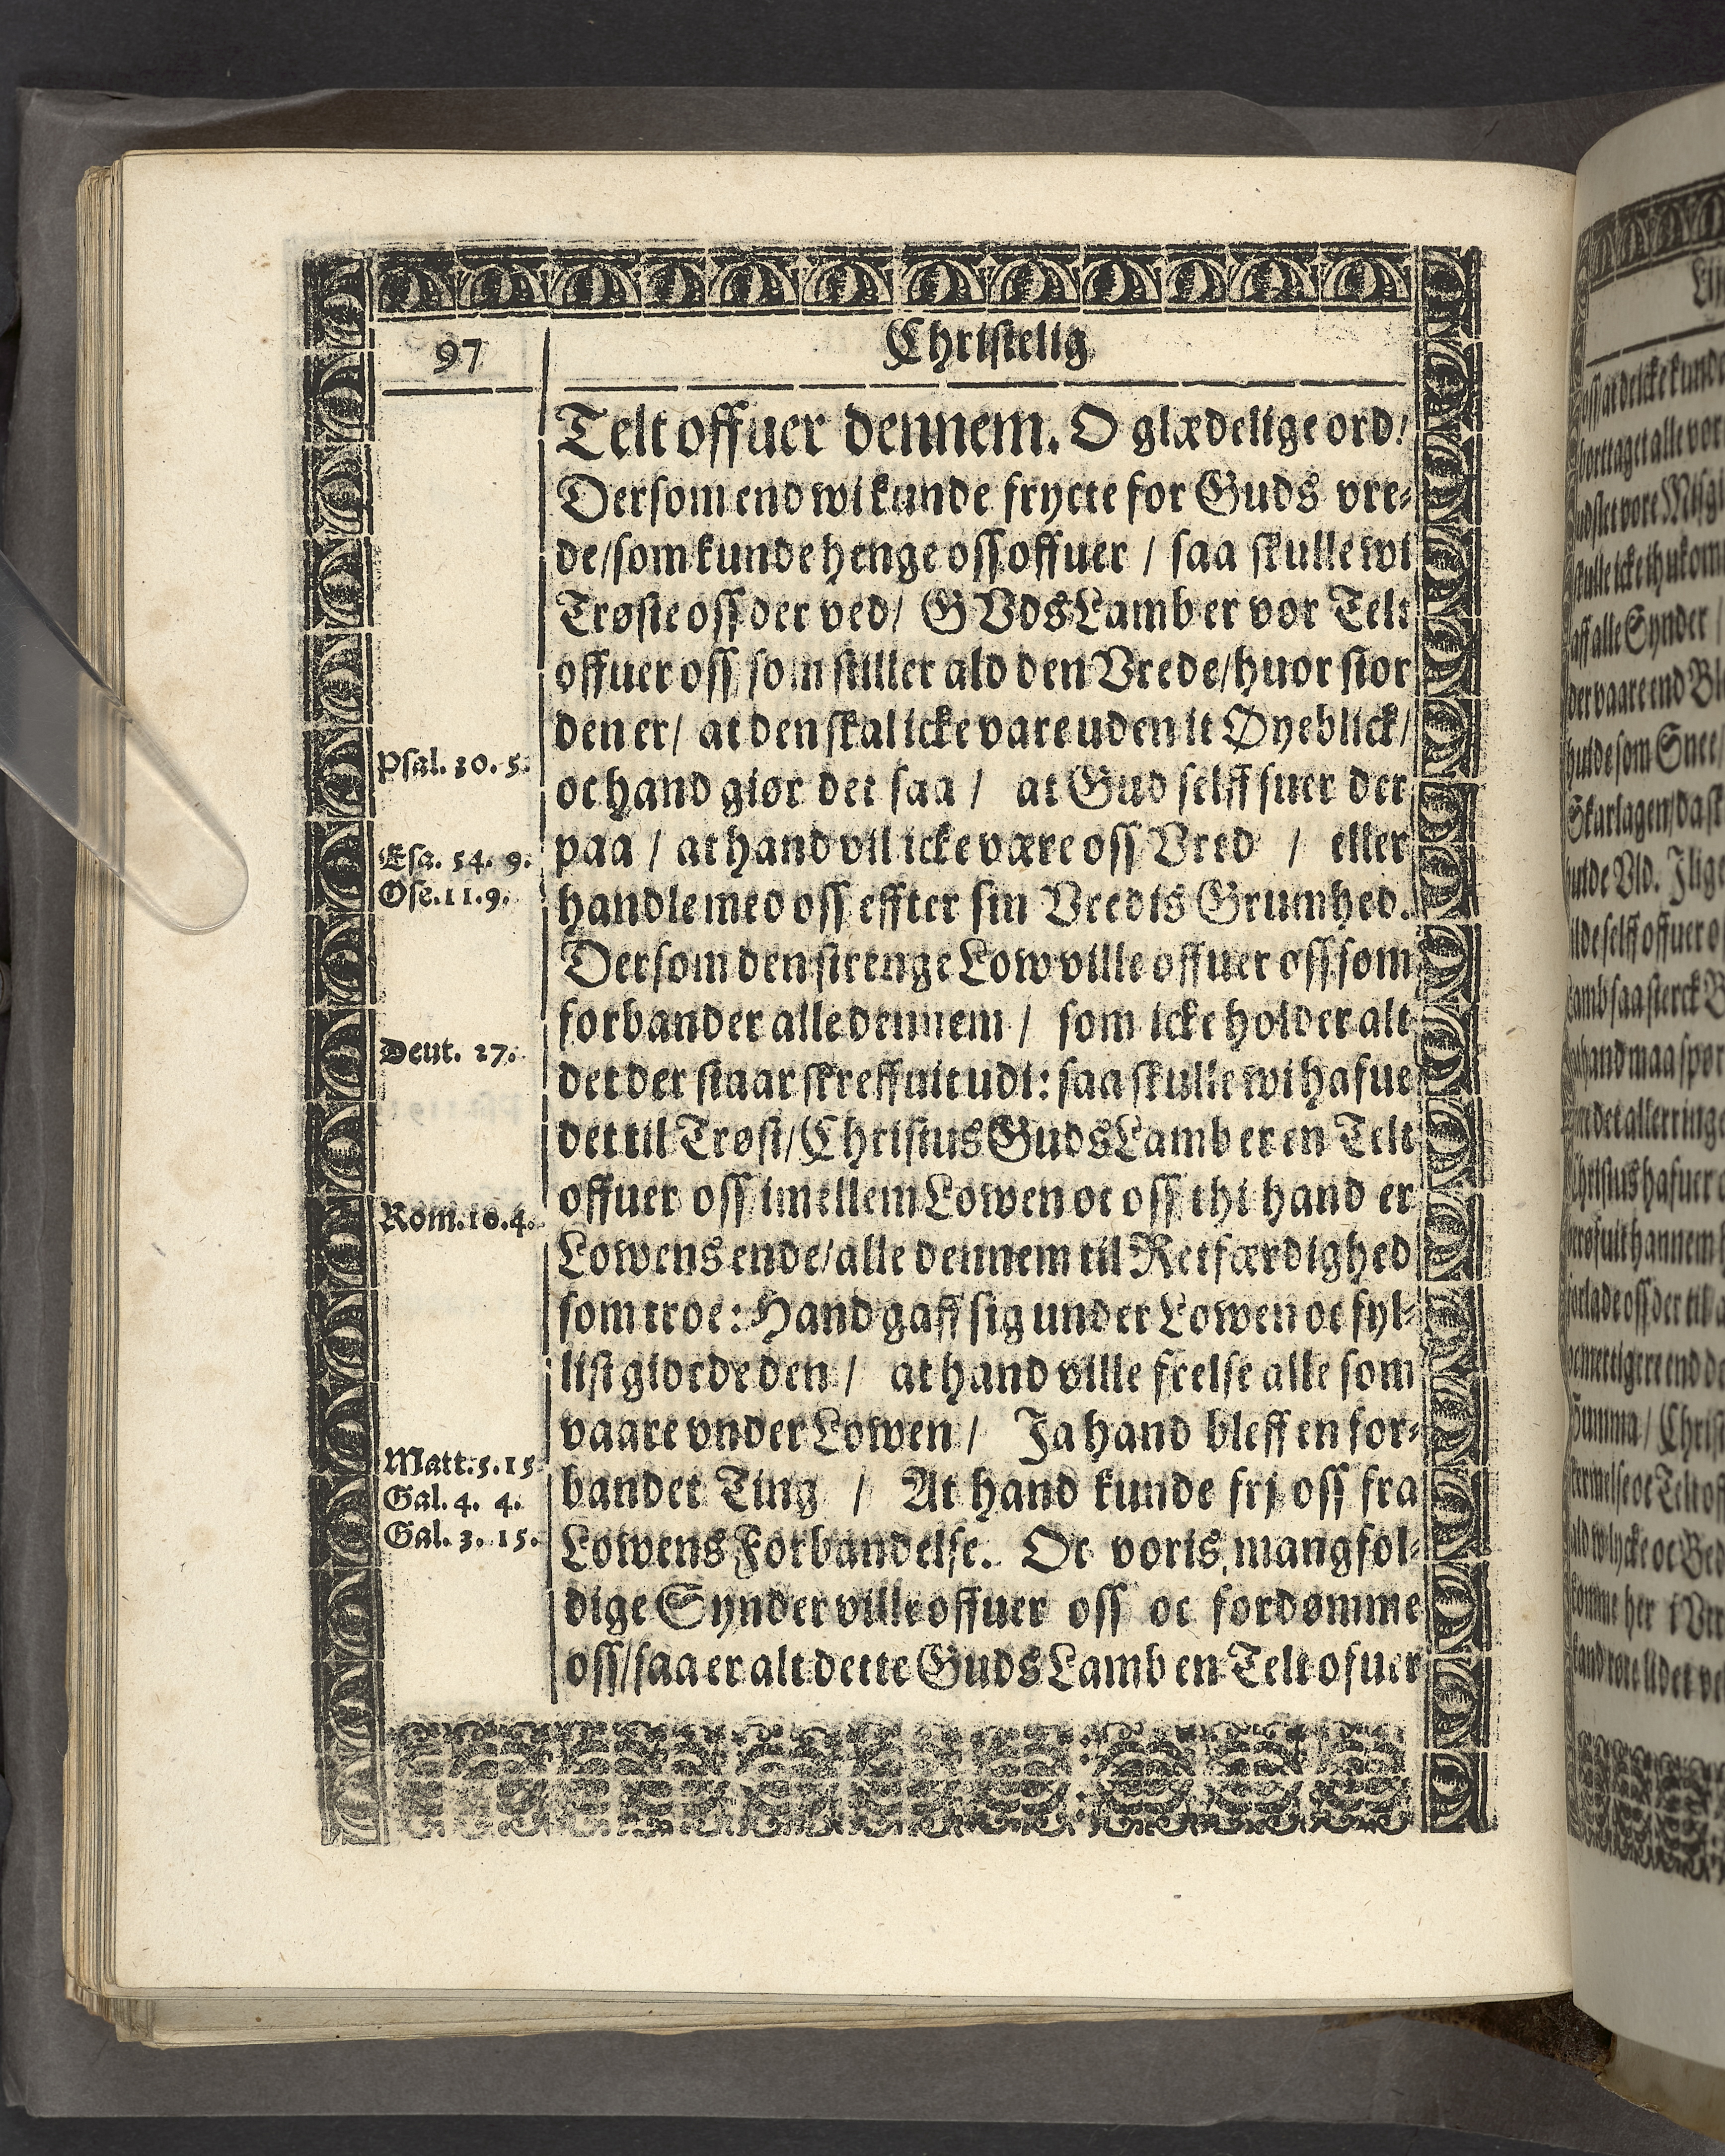 97
Christelig
Telt offuer dennem. O glædelige ord!
Dersom end wi kunde frycte for Guds vre-
de/ som kunde henge oss offuer / saa skulle wi
Trøste oss der ved/ GVds Lamb er vor Telt
offuer oss som stiller ald den Vrede/ huor stor
den er/ at den skal icke vare uden it Øyeblick/
oc hand giør det saa / at Gud selff suer der
paa / at hand vil icke være oss Vred / eller
handle med oss effter sin Vredis Grumhed.
Dersom den strenge Low ville offuer oss som
forbander alle dennem / som icke holder alt
det der staar skreffuit udi: saa skulle wi hafue
det til Trøst/ Christus Guds Lamb er en Telt
offuer oss imellem Lowen oc oss thi hand er
Lowens ende/ alle dennem til Retfærdighed
som troe: Hand gaff sig under Lowen oc fyl-
list giorde den / at hand ville frelse alle som
vaare vnder Lowen / Ja hand bleff en for-
bandet Ting / At hand kunde frj oss fra
Lowens Forbandelse. Oc voris mangfol-
dige Synder ville offuer oss oc fordømme
oss/ saa er alt dette Guds Lamb en Telt ofuer
Psal. 30. 5.
Esa. 54. 9.
Ose. 11. 9.
Deut. 27.
Rom. 10. 4.
Matt. 5. 15
Gal. 4. 4.
Gal. 3. 15.